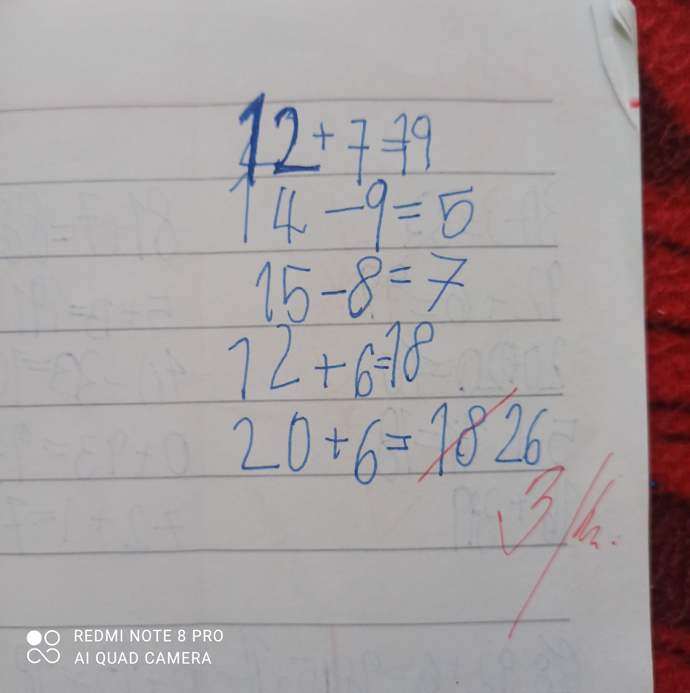 12 + 7 = 19
14 - 9 = 5
15 - 8 = 7
12 + 6 = 18
20 + 6 = 18 26
3
REDMI NOTE 8 PRO
AI QUAD CAMERA